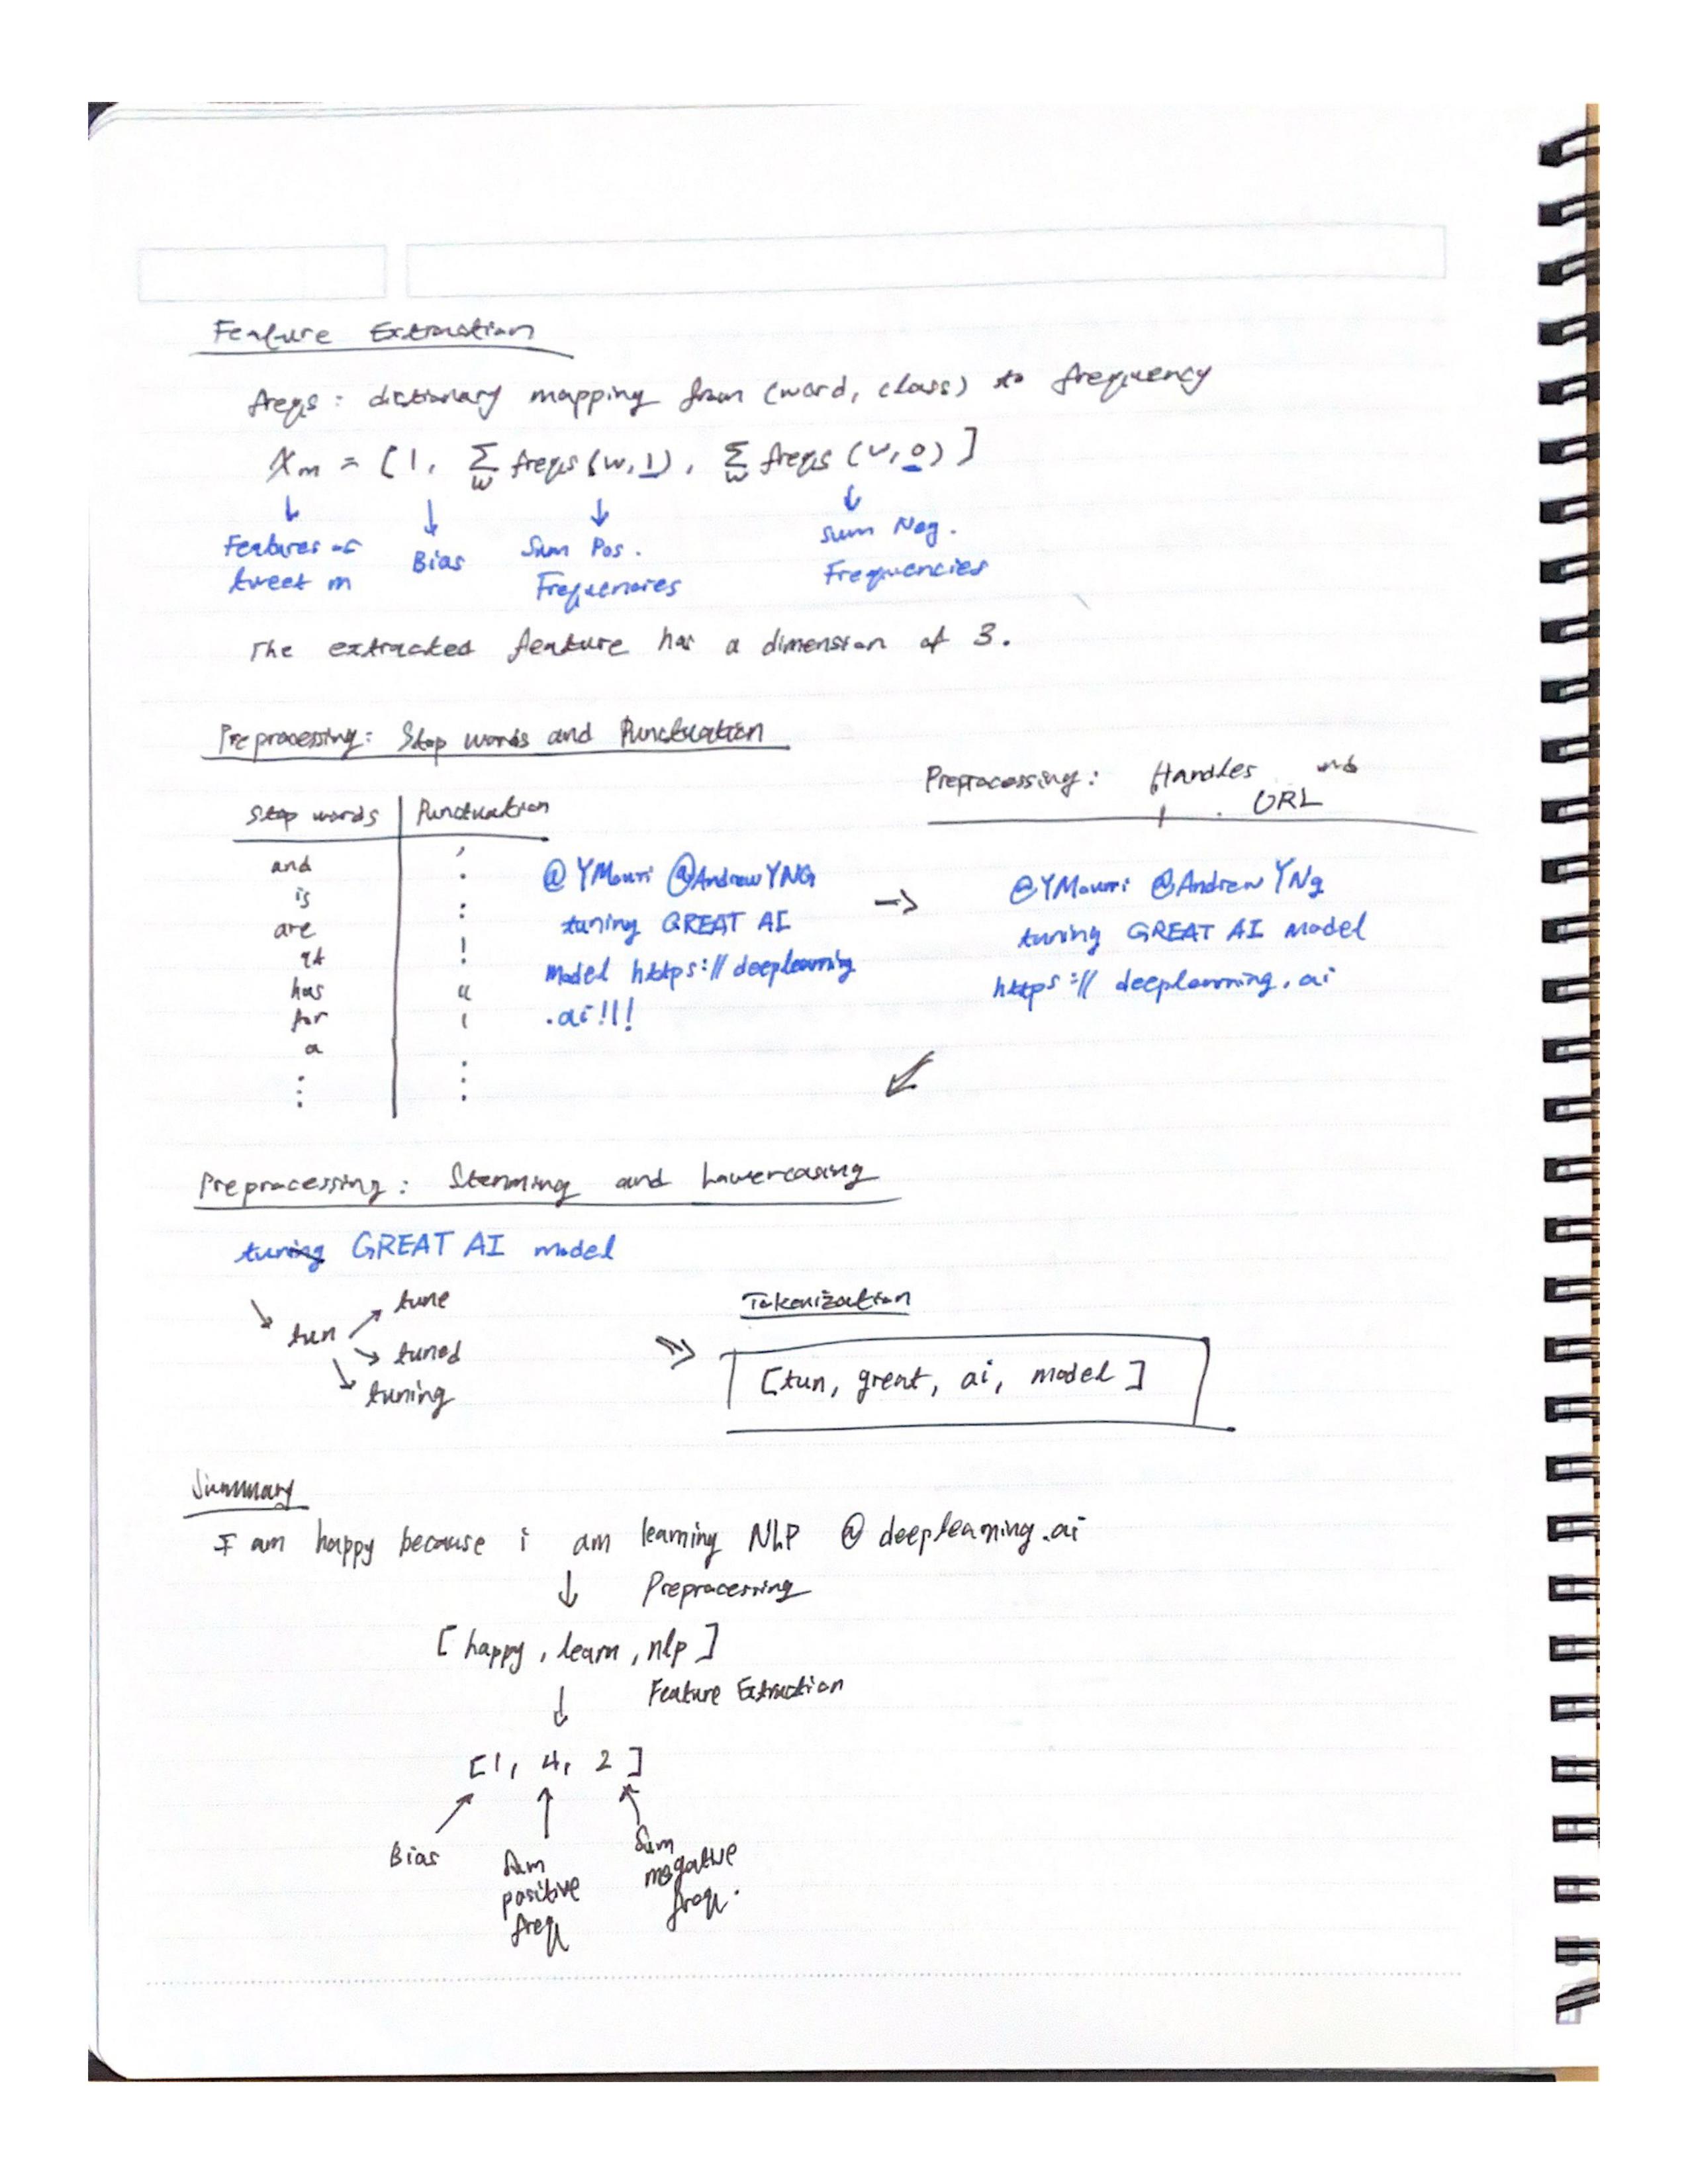 Feature Extraction
freqs : dictionary mapping from (word, class) to frequency
Xm = [1, Σw freqs(w,1), Σw freqs(w,0)]
Features of tweet m
Bias
Sum Pos. Frequencies
Sum Neg. Frequencies
The extracted feature has a dimension of 3.
Preprocessing: Stop words and Punctuation
Stop words
and
is
are
at
has
for
a
⋮
Punctuation
,
.
:
!
“
‘
⋮
@YMourri @AndrewYNG
tuning GREAT AI
model https://deeplearning
.ai!!!
→
Preprocessing: Handles and
URL
@YMourri @AndrewYNg
tuning GREAT AI model
https://deeplearning.ai
Preprocessing: Stemming and Lowercasing
tuning GREAT AI model
tun
tune
tuned
tuning
Tokenization
[tun, great, ai, model]
Summary
I am happy because i am learning NLP @ deeplearning.ai
↓ Preprocessing
[happy, learn, nlp]
↓ Feature Extraction
[1, 4, 2]
Bias
Sum
positive
freq
Sum
negative
freq.